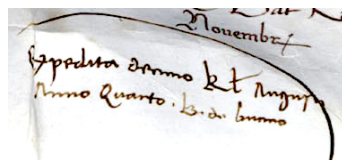 Novembr
Expedita decimo kl Augusti
Anno Quarto. B. de bucino